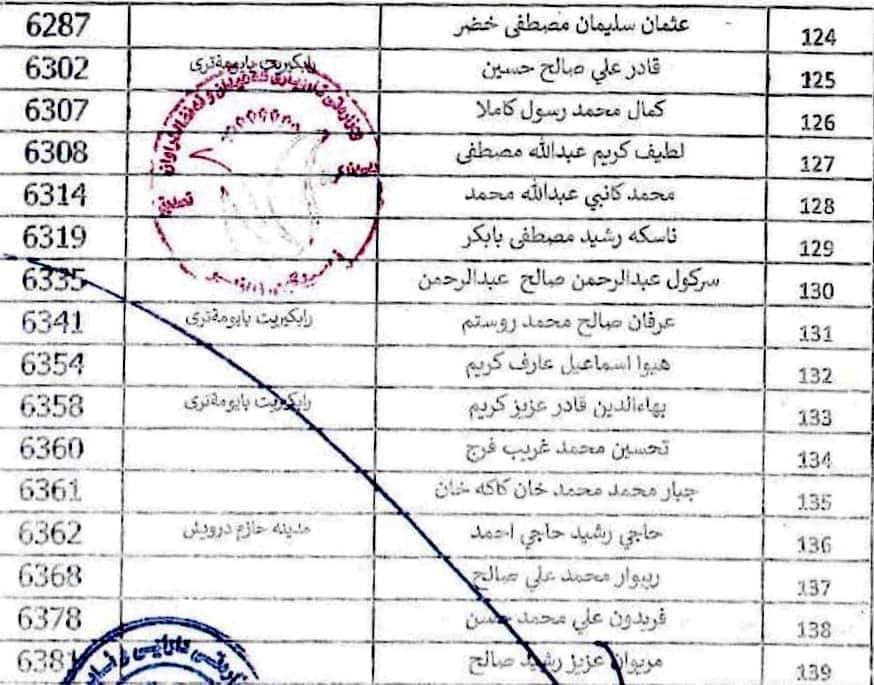 124 عثمان سليمان مصطفى خضر 6287
125 قادر علي صالح حسين رابکیریت بایومةتری 6302
126 كمال محمد رسول كاملا 6307
127 لطيف كريم عبدالله مصطفى 6308
128 محمد كانبي عبدالله محمد 6314
129 ناسكه رشيد مصطفى بابكر 6319
130 سركول عبدالرحمن صالح عبدالرحمن 6335
131 عرفان صالح محمد روستم رابکیریت بایومةتری 6341
132 هيوا اسماعيل عارف كريم 6354
133 بهاءالدين قادر عزيز كريم رابکیریت بایومةتری 6358
134 تحسين محمد غريب فرج 6360
135 جبار محمد محمد خان كاكه خان 6361
136 حاجي رشيد حاجي احمد مدينه حازم درويش 6362
137 ريبوار محمد علي صالح 6368
138 فريدون علي محمد حسن 6378
139 مريوان عزيز رشيد صالح